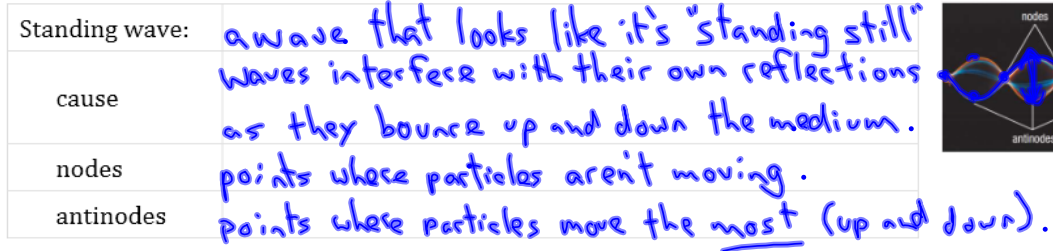 Standing wave: a wave that looks like it's "standing still"
waves interfere with their own reflections
cause
as they bounce up and down the medium.
nodes points where particles aren't moving.
antinodes points where particles move the most (up and down).
nodes
antinodes